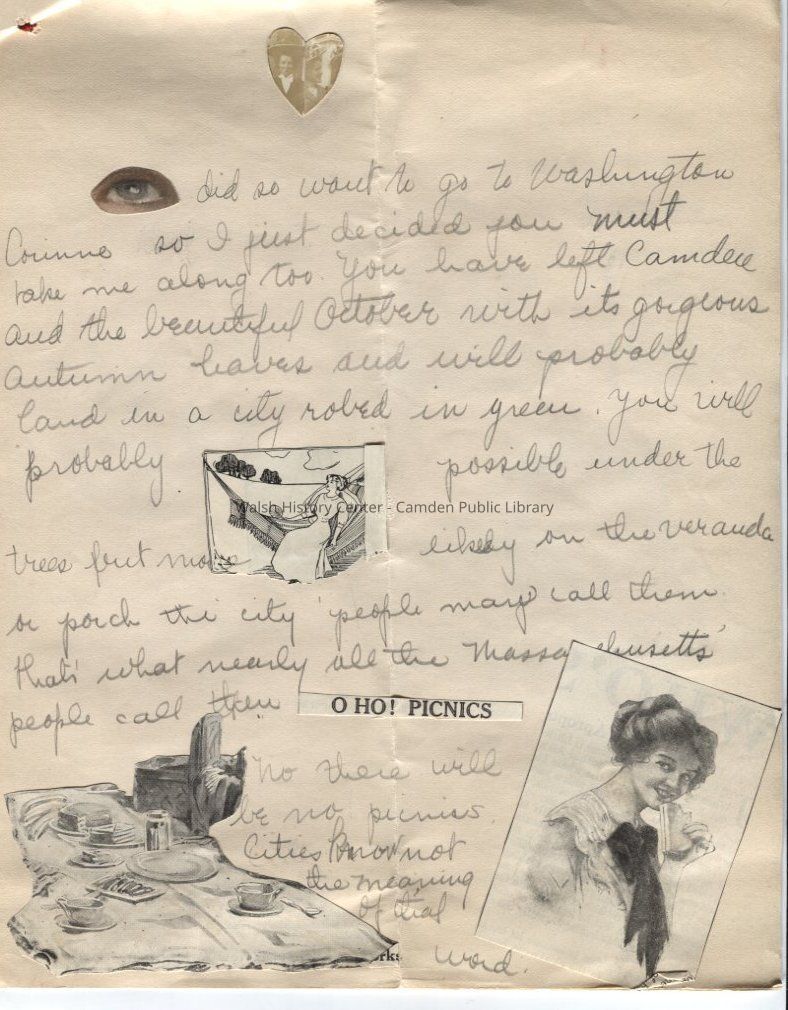 did so want to go to Washington
Corinne so I just decided you must
take me along too. You have left Camden
and the beautiful October with its gorgeous
Autumn leaves and will probably
land in a city robed in green. You will
probably possible under the
Walsh History Center - Camden Public Library
trees but more likely on the veranda
or porch the city people may call them
that's what nearly all the Massachusetts
people call them
O HO! PICNICS
No there will
be no picnics.
Cities know not
the meaning
of that
word.
rks